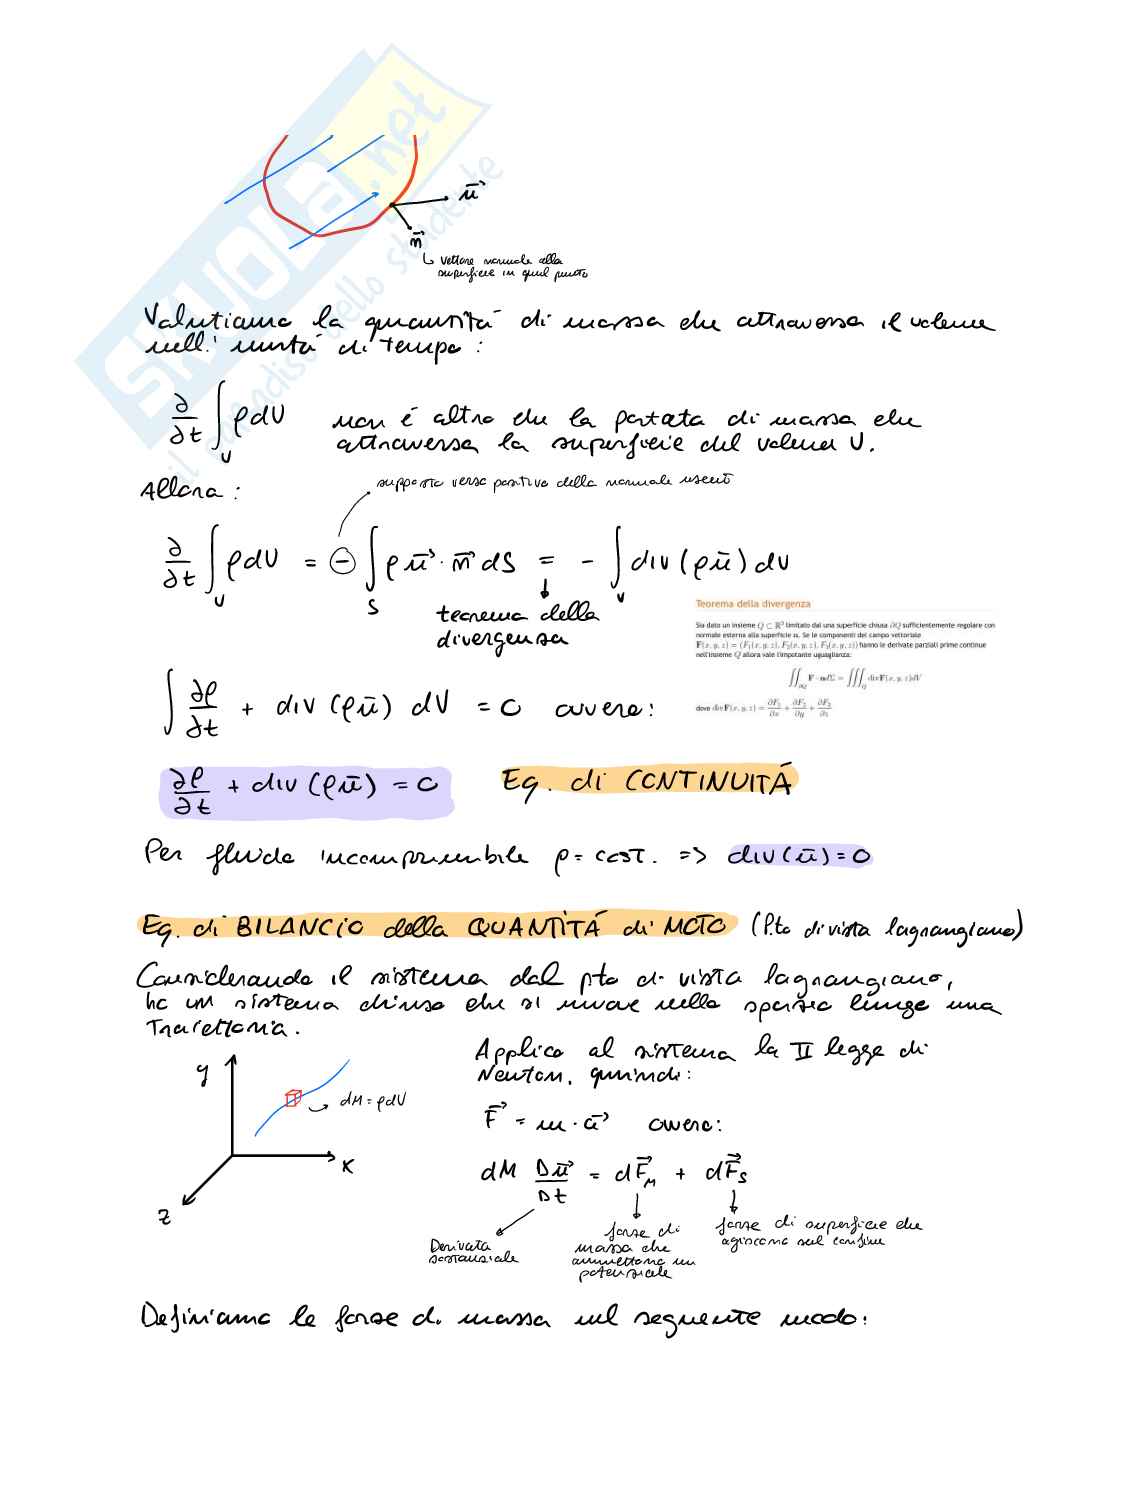 SKUOLA.net
il paradiso dello studente
u⃗
n⃗
vettore normale alla
superficie in quel punto
Valutiamo la quantità di massa che attraversa il volume
nell' unità di tempo:
∂/∂t ∫_V ρdV non è altro che la portata di massa che
attraversa la superficie del volume V.
Allora:
supposto verso positivo della normale uscente
∂/∂t ∫_V ρdV = ⊖ ∫_S ρu⃗ · n⃗ dS = - ∫_V div (ρū) dV
teorema della
divergenza
Teorema della divergenza
Sia dato un insieme Q ⊂ ℝ³ limitato dal una superficie chiusa ∂Q sufficientemente regolare con
normale esterna alla superficie n. Se le componenti del campo vettoriale
F(x, y, z) = (F₁(x, y, z), F₂(x, y, z), F₃(x, y, z)) hanno le derivate parziali prime continue
nell'insieme Q allora vale l'impotante uguaglianza:
∬_∂Q F · n dΣ = ∭_Q divF(x, y, z)dV
dove divF(x, y, z) = ∂F₁/∂x + ∂F₂/∂y + ∂F₃/∂z
∫ ∂ρ/∂t + div (ρū) dV = 0 ovvero:
∂ρ/∂t + div (ρū) = 0 Eq. di CONTINUITÁ
Per fluido incomprimibile ρ = cost. => div(ū)=0
Eq. di BILANCIO della QUANTITÁ di MOTO (P.to di vista lagrangiano)
Considerando il sistema dal pto di vista lagrangiano,
ho un sistema chiuso che si muove nello spazio lungo una
Traiettoria.
Applico al sistema la II legge di
Newton, quindi:
y
x
z
dM = ρdV
F⃗ = m · a⃗ ovvero:
dM Du⃗/Dt = dF⃗_M + dF⃗_S
Derivata
sostanziale
forze di
massa che
ammettono un
potenziale
forze di superficie che
agiscono sul confine
Definiamo le forze di massa nel seguente modo: